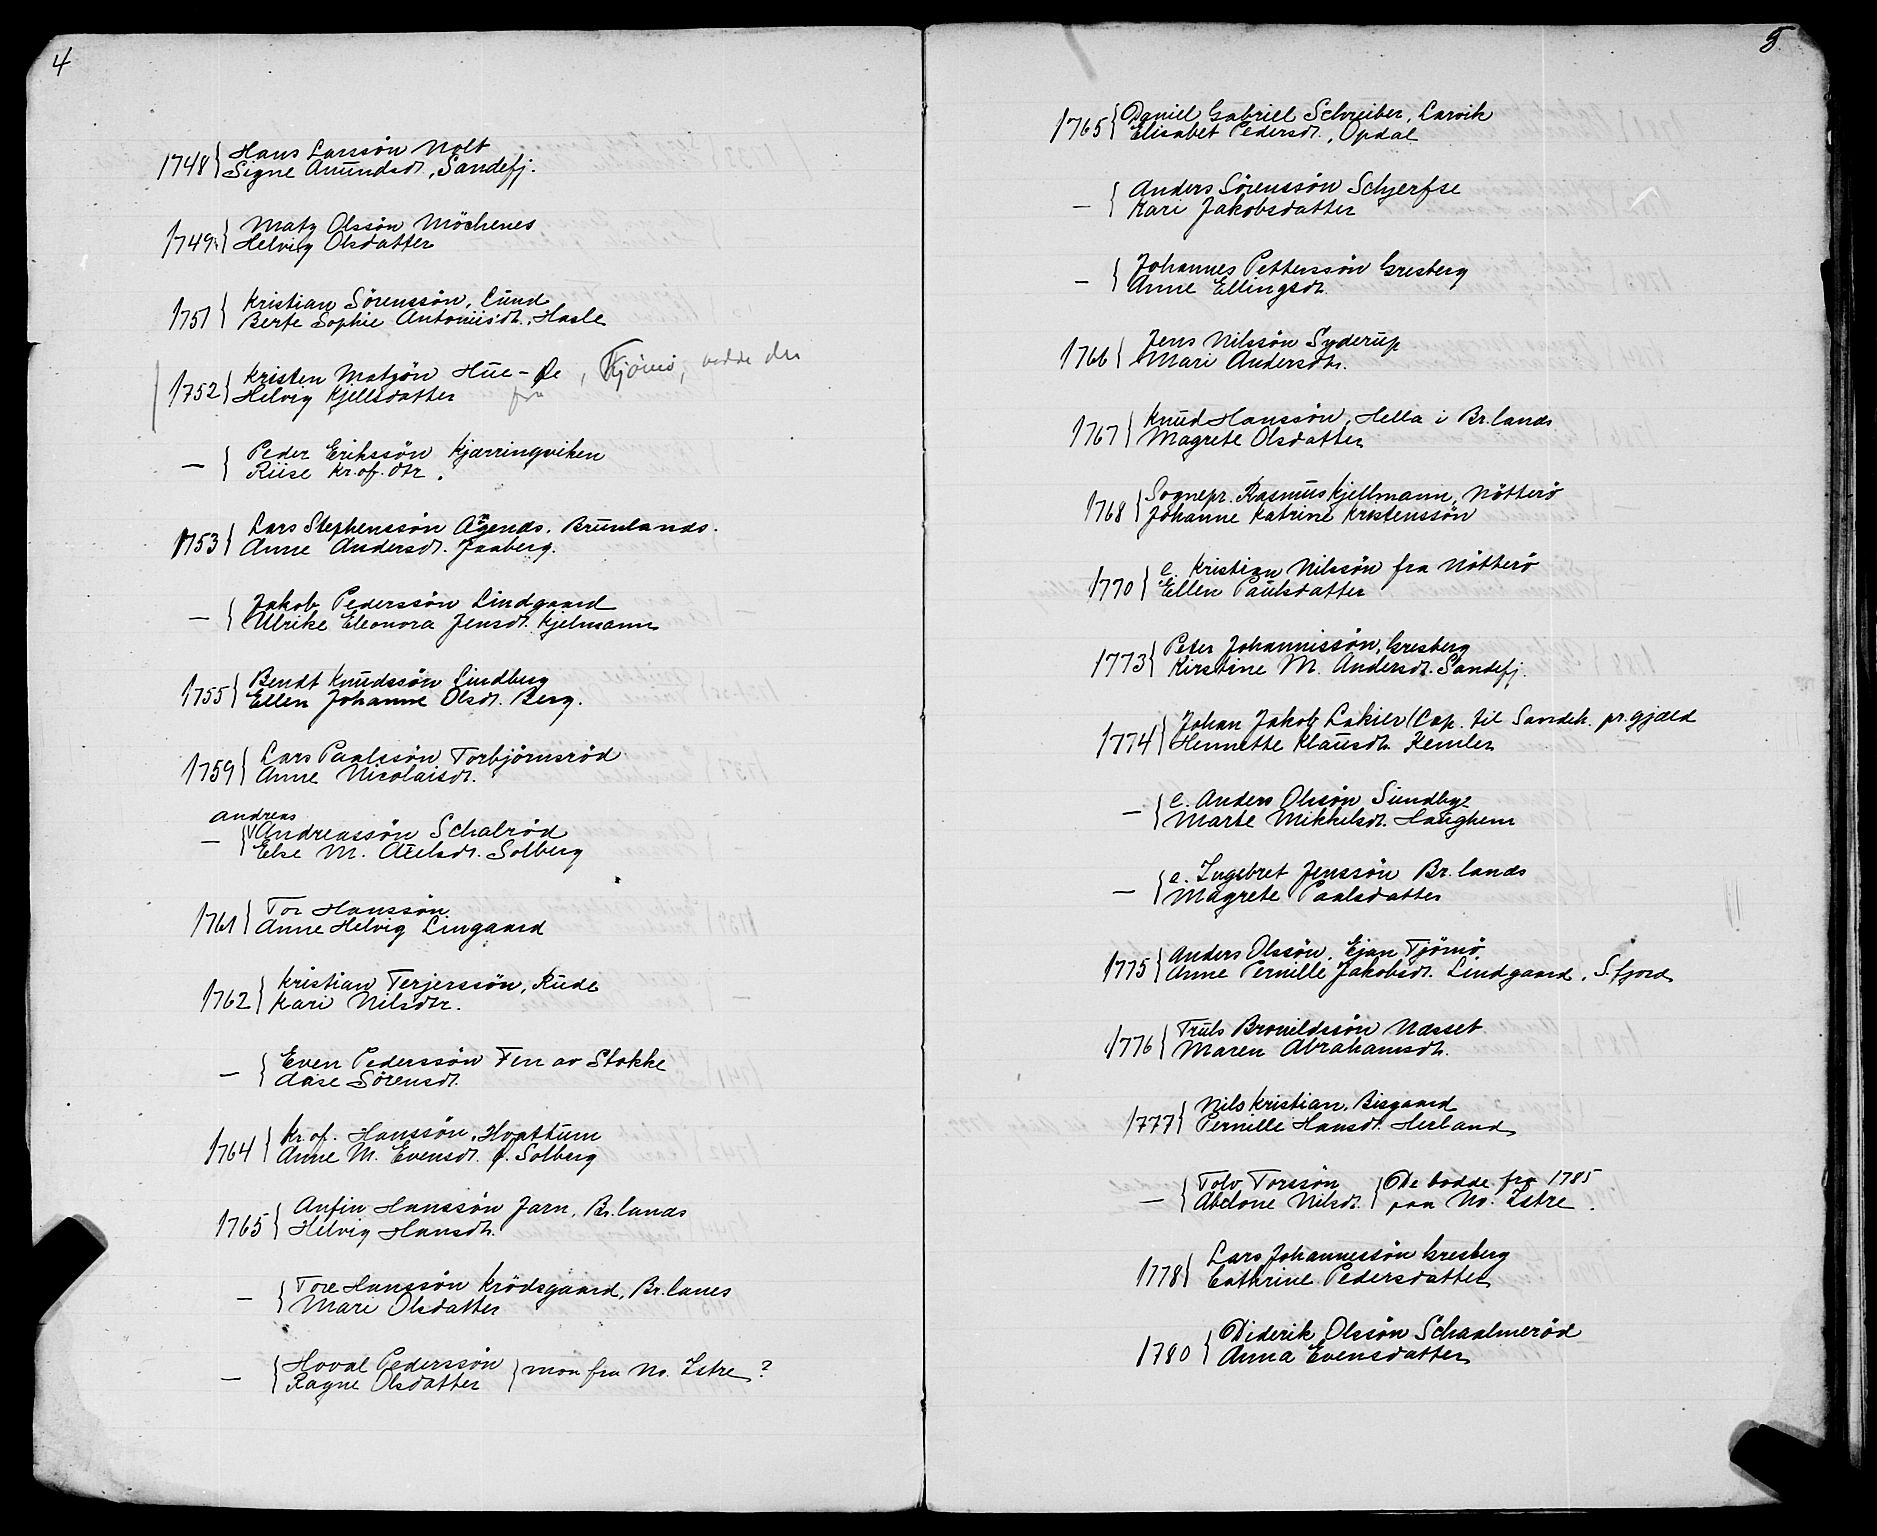 4
1748 { Hans Larssön Nolt
Signe Amundsdt., Sandefj.
1749 { Matz Olssön Möchenes
Helvig Olsdatter
1751 { Kristian Sörenssön, Lund
Berte Sophie Antoniisdt., Hasle
1752 { Kristen Matzön Hue-Øe, Tjömö,
Helvig Kjellsdatter fra
— { Peder Erikssön Kjærringviken
Riise Kr.of.dtr.
1753 { Lars Stephenssön Agends. Brunlands.
Anne Andersdt. Jaaberg.
— { Jakob Pederssön Lindgaard
Ulrike Eleonora Jensdt. Kjelmann
1755 { Bendt Knudssön Lindberg
Ellen Johanne Olsdt. Berg.
1759 { Lars Paalssön Torbjörnsröd
Anne Nicolaisdt.
andreas
— { Andreassön Schalröd
Else M. Axelsdt. Solberg
1761 { Tor Hanssön
Anne Helvig Lingaard
1762 { Kristian Terjerssön, Rude
Kari Nilsdtr.
— { Even Pederssön Fen av Stokke
Aase Sörensdt.
1764 { Kr.of. Hanssön, Hvattum
Anne M. Evensdt. Ø. Solberg
1765 { Anfin Hanssön Jarn, Br.lands
Helvig Hansdt.
— { Tore Hanssön Krödsgaard, Br.lanes
Mari Olsdatter
— { Hoval Pederssön
Ragne Olsdatter } mon fra No. Istre?
5
1765 { Daniel Gabriel Schreiber, Larvik
Elisabet Pedersdt., Opdal
— { Anders Sörenssön Schjerfse
Kari Jakobsdatter
— { Johannes Petterssön Gresberg
Anne Ellingsdt.
1766 { Jens Nilssön Syderup
Mari Andersdt.
1767 { Knud Hanssön, Hella i Br.lands
Magrete Olsdatter
1768 { Sognepr. Rasmus Kjellmann, Nötterö
Johanne Katrine Kristenssön
1770 { e. Kristian Nilssön fra Nötterö
Ellen Paulsdatter
1773 { Peter Johannissön, Gresberg
Kirstine M. Andersdt. Sandefj.
1774 { Johan Jakob Lakier (Cap. til Sandeh. pr.gjæld
Hennette Klausdt. Kemler
— { e. Anders Olssön Sundbye
Marte Mikkelsdt. Haughem
— { e. Ingebret Jenssön Br.lands
Magrete Paalsdatter
1775 { Anders Olssön, Ejan Tjömö
Anne Pernille Jakobsdt. Lindgaard, S.fjord
1776 { Truls Bronildssön Næsset
Maren Abrahamsdt.
1777 { Nils Kristian, Bisgaard
Pernille Hansdt. Hesland
— { Tolv Torssön } De bodde fra 1785
Abelone Nilsdt. } paa No. Istre.
1778 { Lars Johannessön Gresberg
Cathrine Pedersdatter
1780 { Diderik Olssön Schaalmeröd
Anna Evensdatter